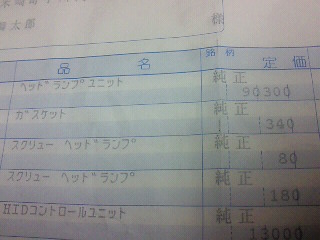 様
品 名 銘柄 定価
ﾍｯﾄﾞﾗﾝﾌﾟﾕﾆｯﾄ 純正 90300
ｶﾞｽｹｯﾄ 純正 340
ｽｸﾘｭｰ ﾍｯﾄﾞﾗﾝﾌﾟ 純正 80
ｽｸﾘｭｰ ﾍｯﾄﾞﾗﾝﾌﾟ 純正 180
HIDｺﾝﾄﾛｰﾙﾕﾆｯﾄ 純正 13000